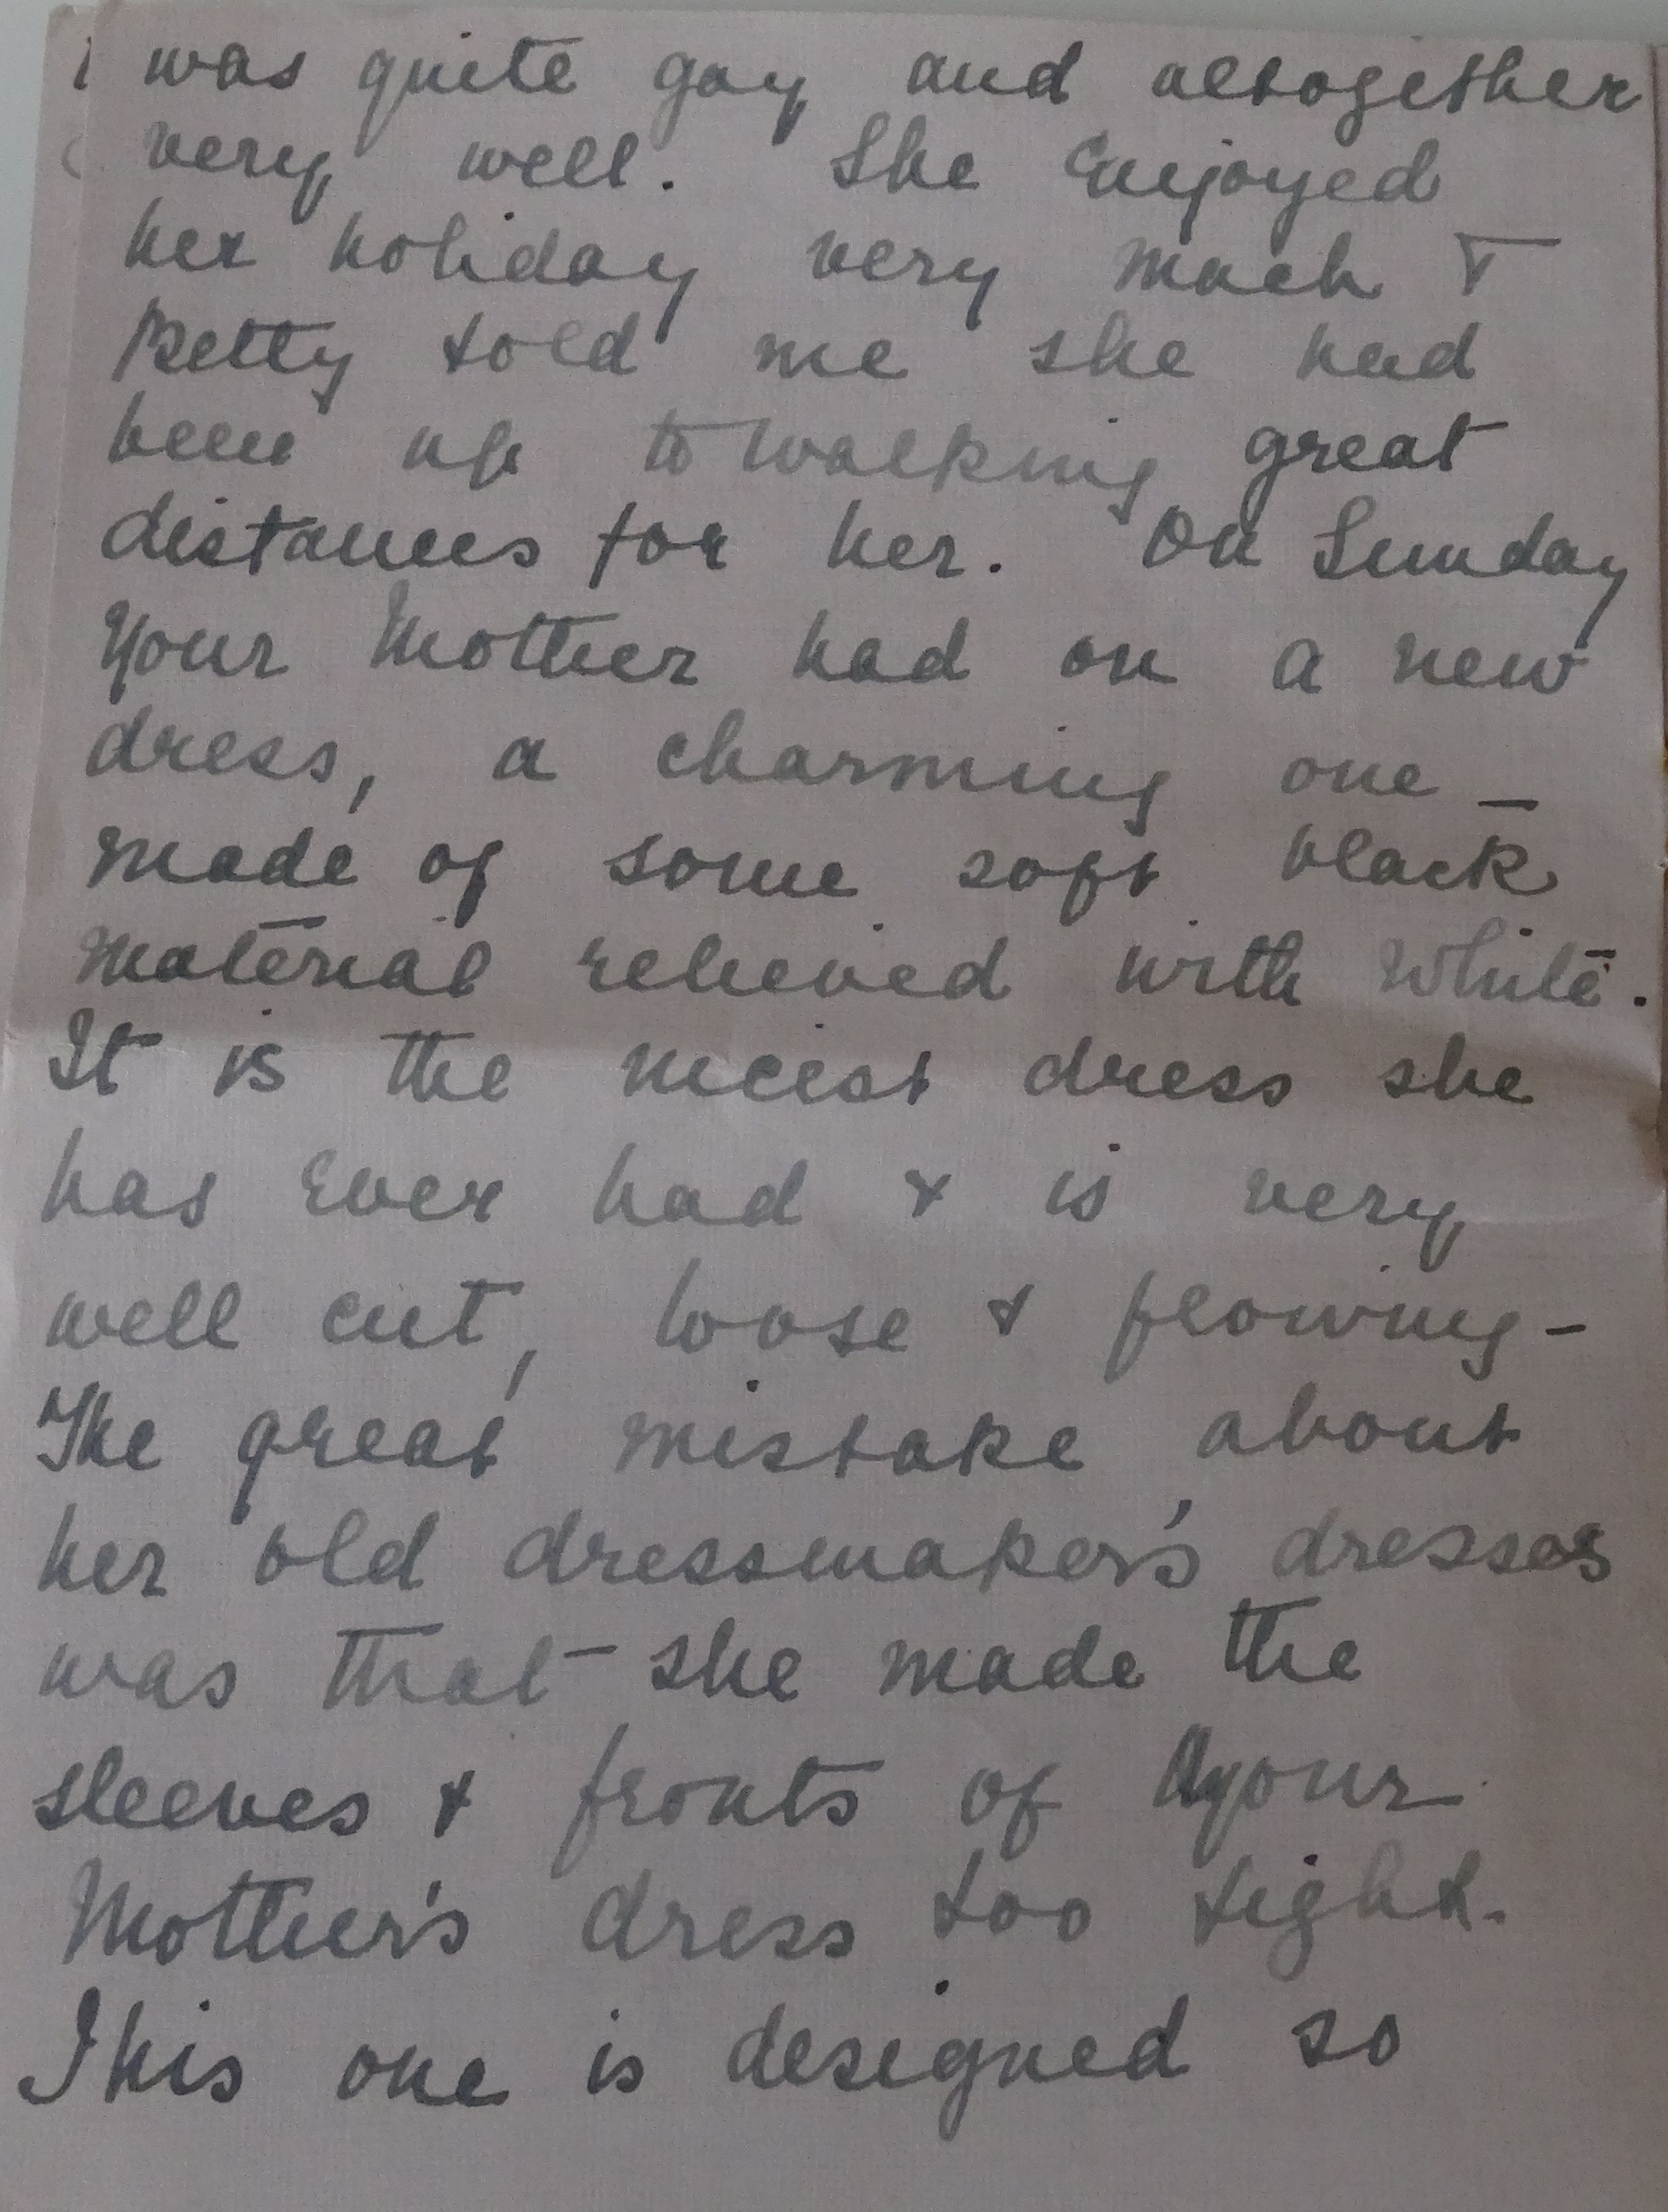 was quite gay and altogether
very well. She Enjoyed
her holiday very much &
Betty told me she had
been up to walking great
distances for her. On Sunday
Your Mother had on a new
dress, a charming one _
made of some soft black
material relieved with white.
It is the nicest dress she
has Ever had & is very
well cut, loose & flowing -
The great mistake about
her old dressmaker's dresses
was that she made the
sleeves & fronts of your
Mother's dress too tight.
This one is designed so